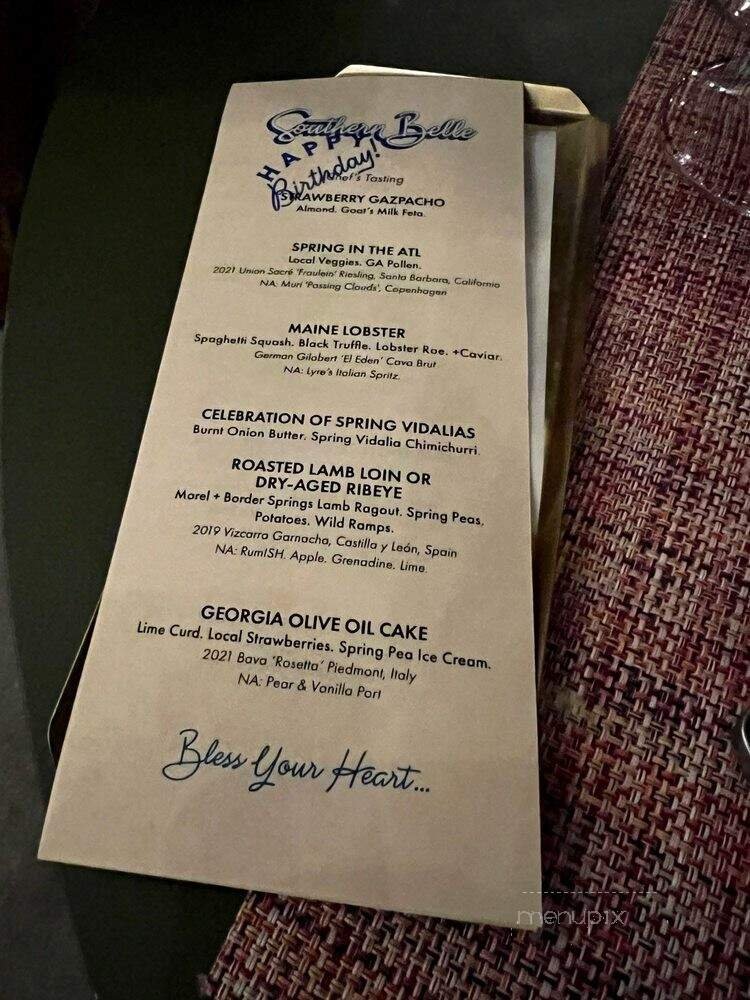 Southern Belle
HAPPY
Birthday!
Chef's Tasting
STRAWBERRY GAZPACHO
Almond. Goat's Milk Feta.
SPRING IN THE ATL
Local Veggies. GA Pollen.
2021 Union Sacré 'Fraulein' Riesling, Santa Barbara, California
NA: Muri 'Passing Clouds', Copenhagen
MAINE LOBSTER
Spaghetti Squash. Black Truffle. Lobster Roe. +Caviar.
German Gilabert 'El Eden' Cava Brut
NA: Lyre's Italian Spritz.
CELEBRATION OF SPRING VIDALIAS
Burnt Onion Butter. Spring Vidalia Chimichurri.
ROASTED LAMB LOIN OR
DRY-AGED RIBEYE
Morel + Border Springs Lamb Ragout. Spring Peas.
Potatoes. Wild Ramps.
2019 Vizcarra Garnacha, Castilla y León, Spain
NA: RumISH. Apple. Grenadine. Lime.
GEORGIA OLIVE OIL CAKE
Lime Curd. Local Strawberries. Spring Pea Ice Cream.
2021 Bava 'Rosetta' Piedmont, Italy
NA: Pear & Vanilla Port
Bless Your Heart...
menupix